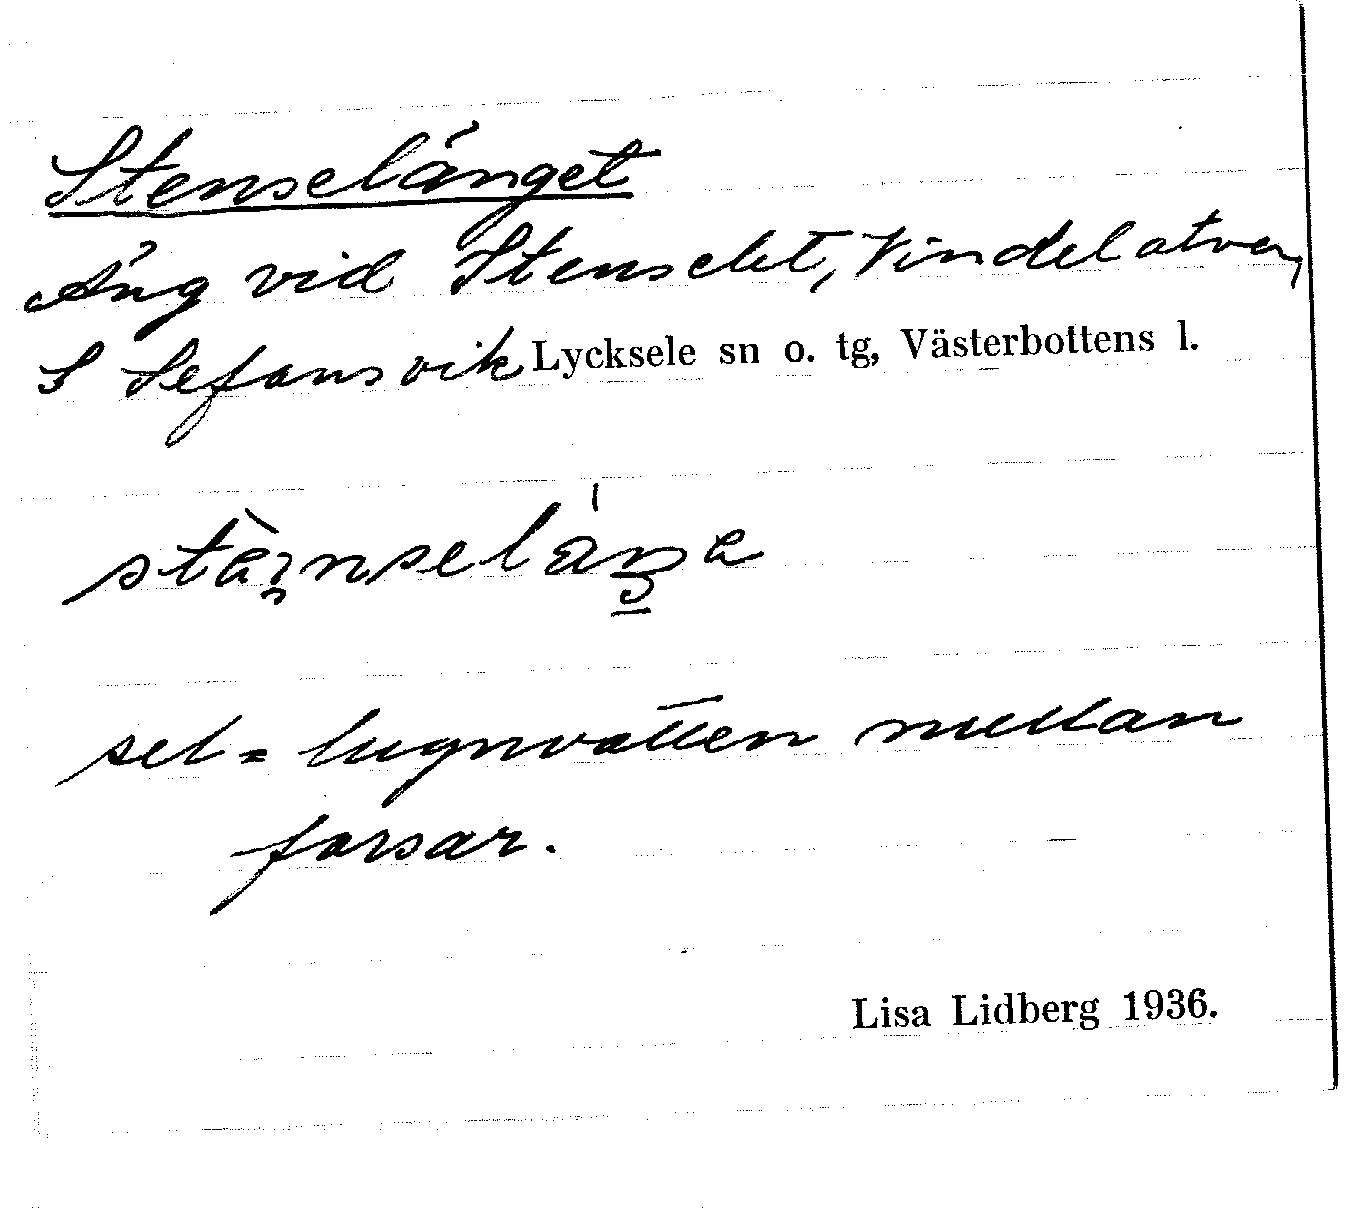 Stenselänget
Äng vid Stenselet, Vindelälven,
S Sefansvik Lycksele sn o. tg, Västerbottens l.
sel = lugnvatten mellan
forsar.
Lisa Lidberg 1936.